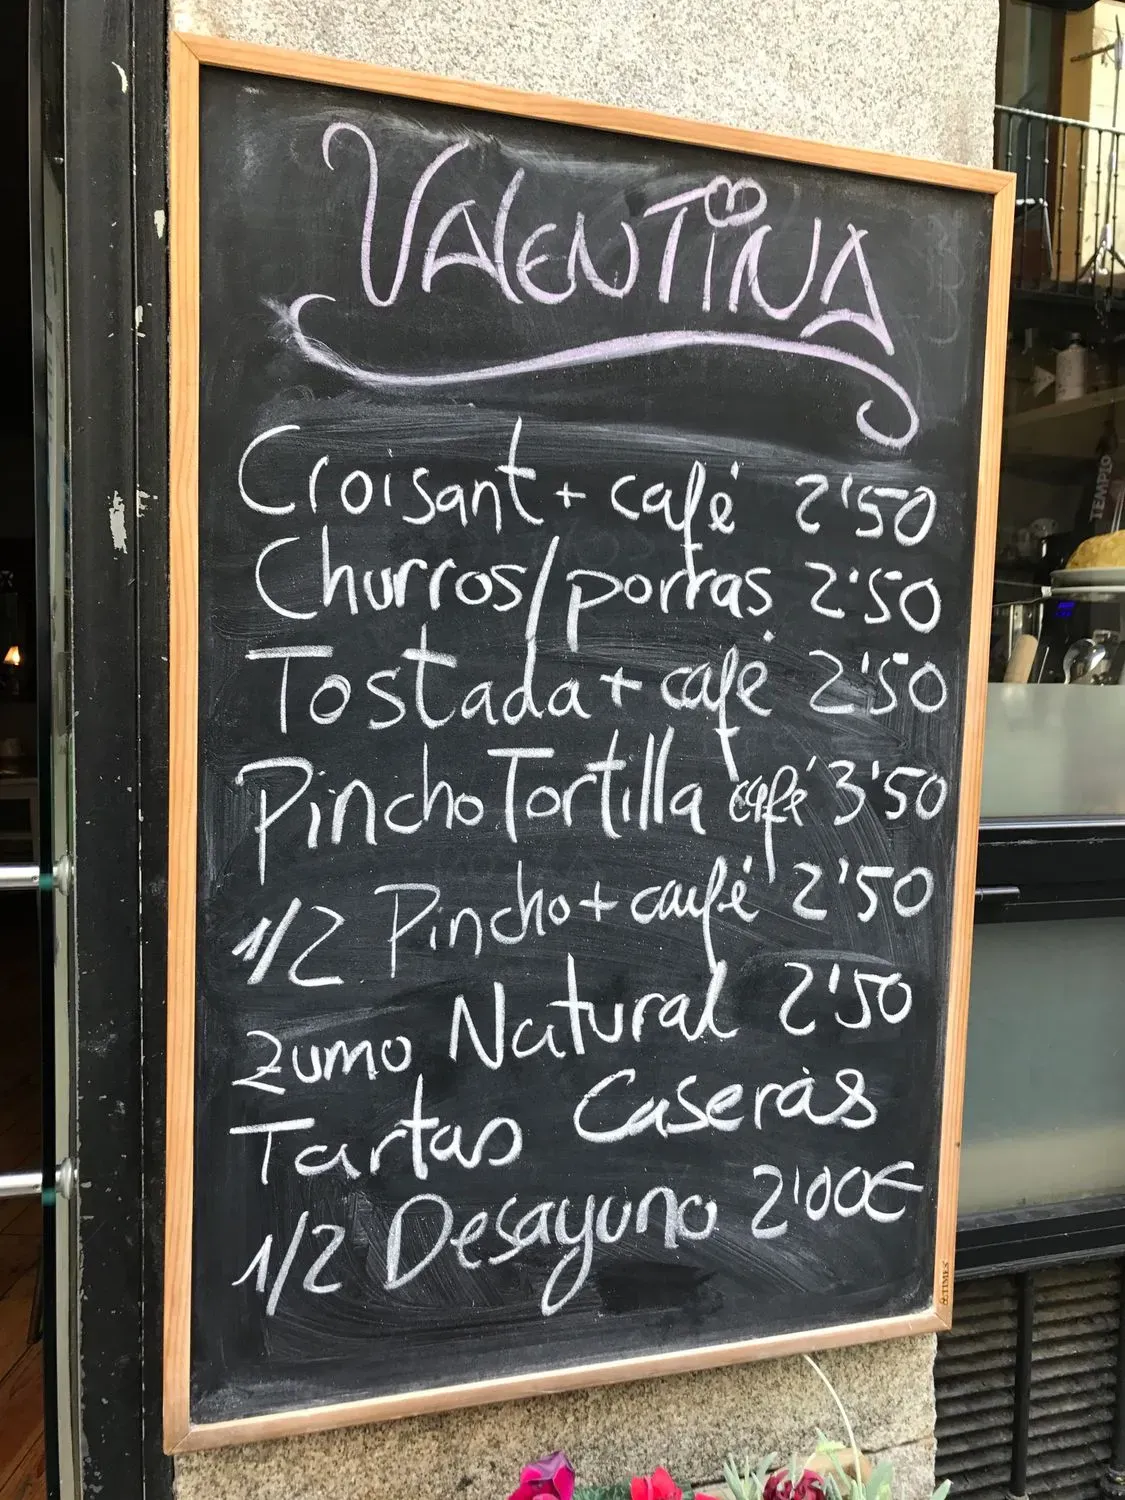 VALENTINA
Croisant + café 2'50
Churros/porras 2'50
Tostada + café 2'50
Pincho Tortilla café 3'50
1/2 Pincho + café 2'50
zumo Natural 2'50
Tartas Caseras
1/2 Desayuno 2'00€
TEMPZO